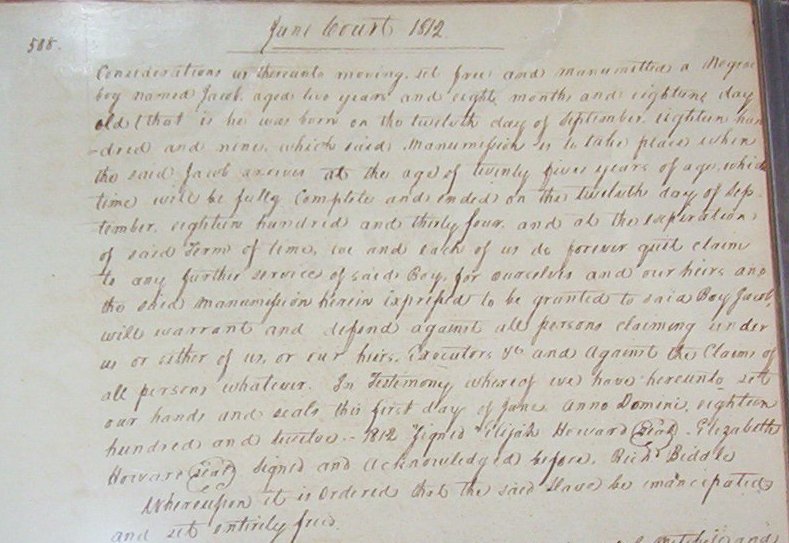 508.
June Court 1812
Considerations us thereunto moving, set free and manumitted a Negroe
boy named Jacob, aged two years and eight months and eighteen day
old (that is he was born on the twelvth day of September, eighteen hun
-dred and nine, which said Manumission is to take place when
the said Jacob arrives at the age of twenty five years of age, which
time will be fully Complete and ended on the twelvth day of Sep-
tember, eighteen hundred and thirty four, and at the experation
of said Term of time, we and each of us do forever quit claim
to any further service of said Boy, for ourselves and our heirs and
the said manumission herein expressed to be granted to said Boy Jacob,
will warrant and defend against all persons claiming under
us or either of us, or our heirs, Executors &c and Against the Claims of
all persons whatever. In Testimony whereof we have hereunto set
our hands and seals this first day of June Anno Domini, eighteen
hundred and twelve -- 1812 Signed Elijah Howard (Seal) Elizabeth
Howard (Seal) Signed and Acknowledged before, Richd Biddle
Whereupon it is Ordered that the said Slave be emancipated
and set entirely free.
Mitchell and